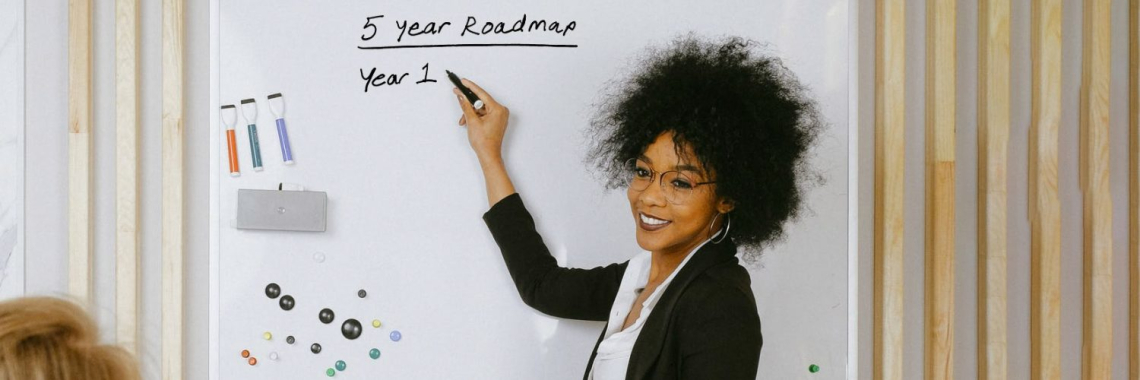 5 year Roadmap
Year 1